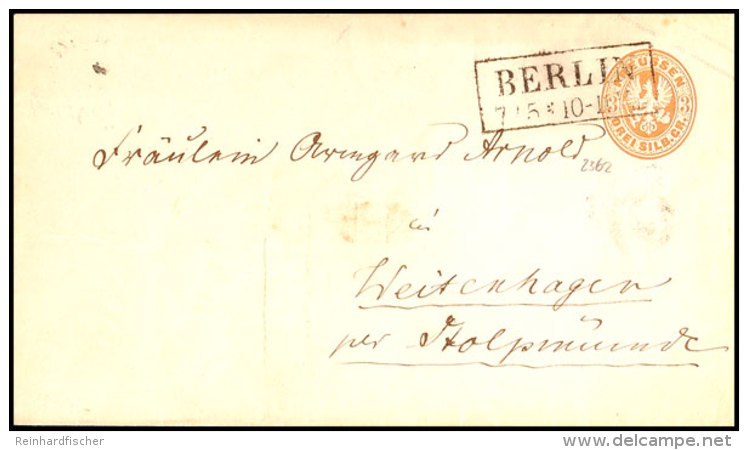 BERLIN
7 5 * 10-
PREUSSEN
3
DREI SILB. GR.
Fräulein Armgard Arnold
2362
in
Weitenhagen
per Stolpmünde
Reinhardfischer
delcampe.net